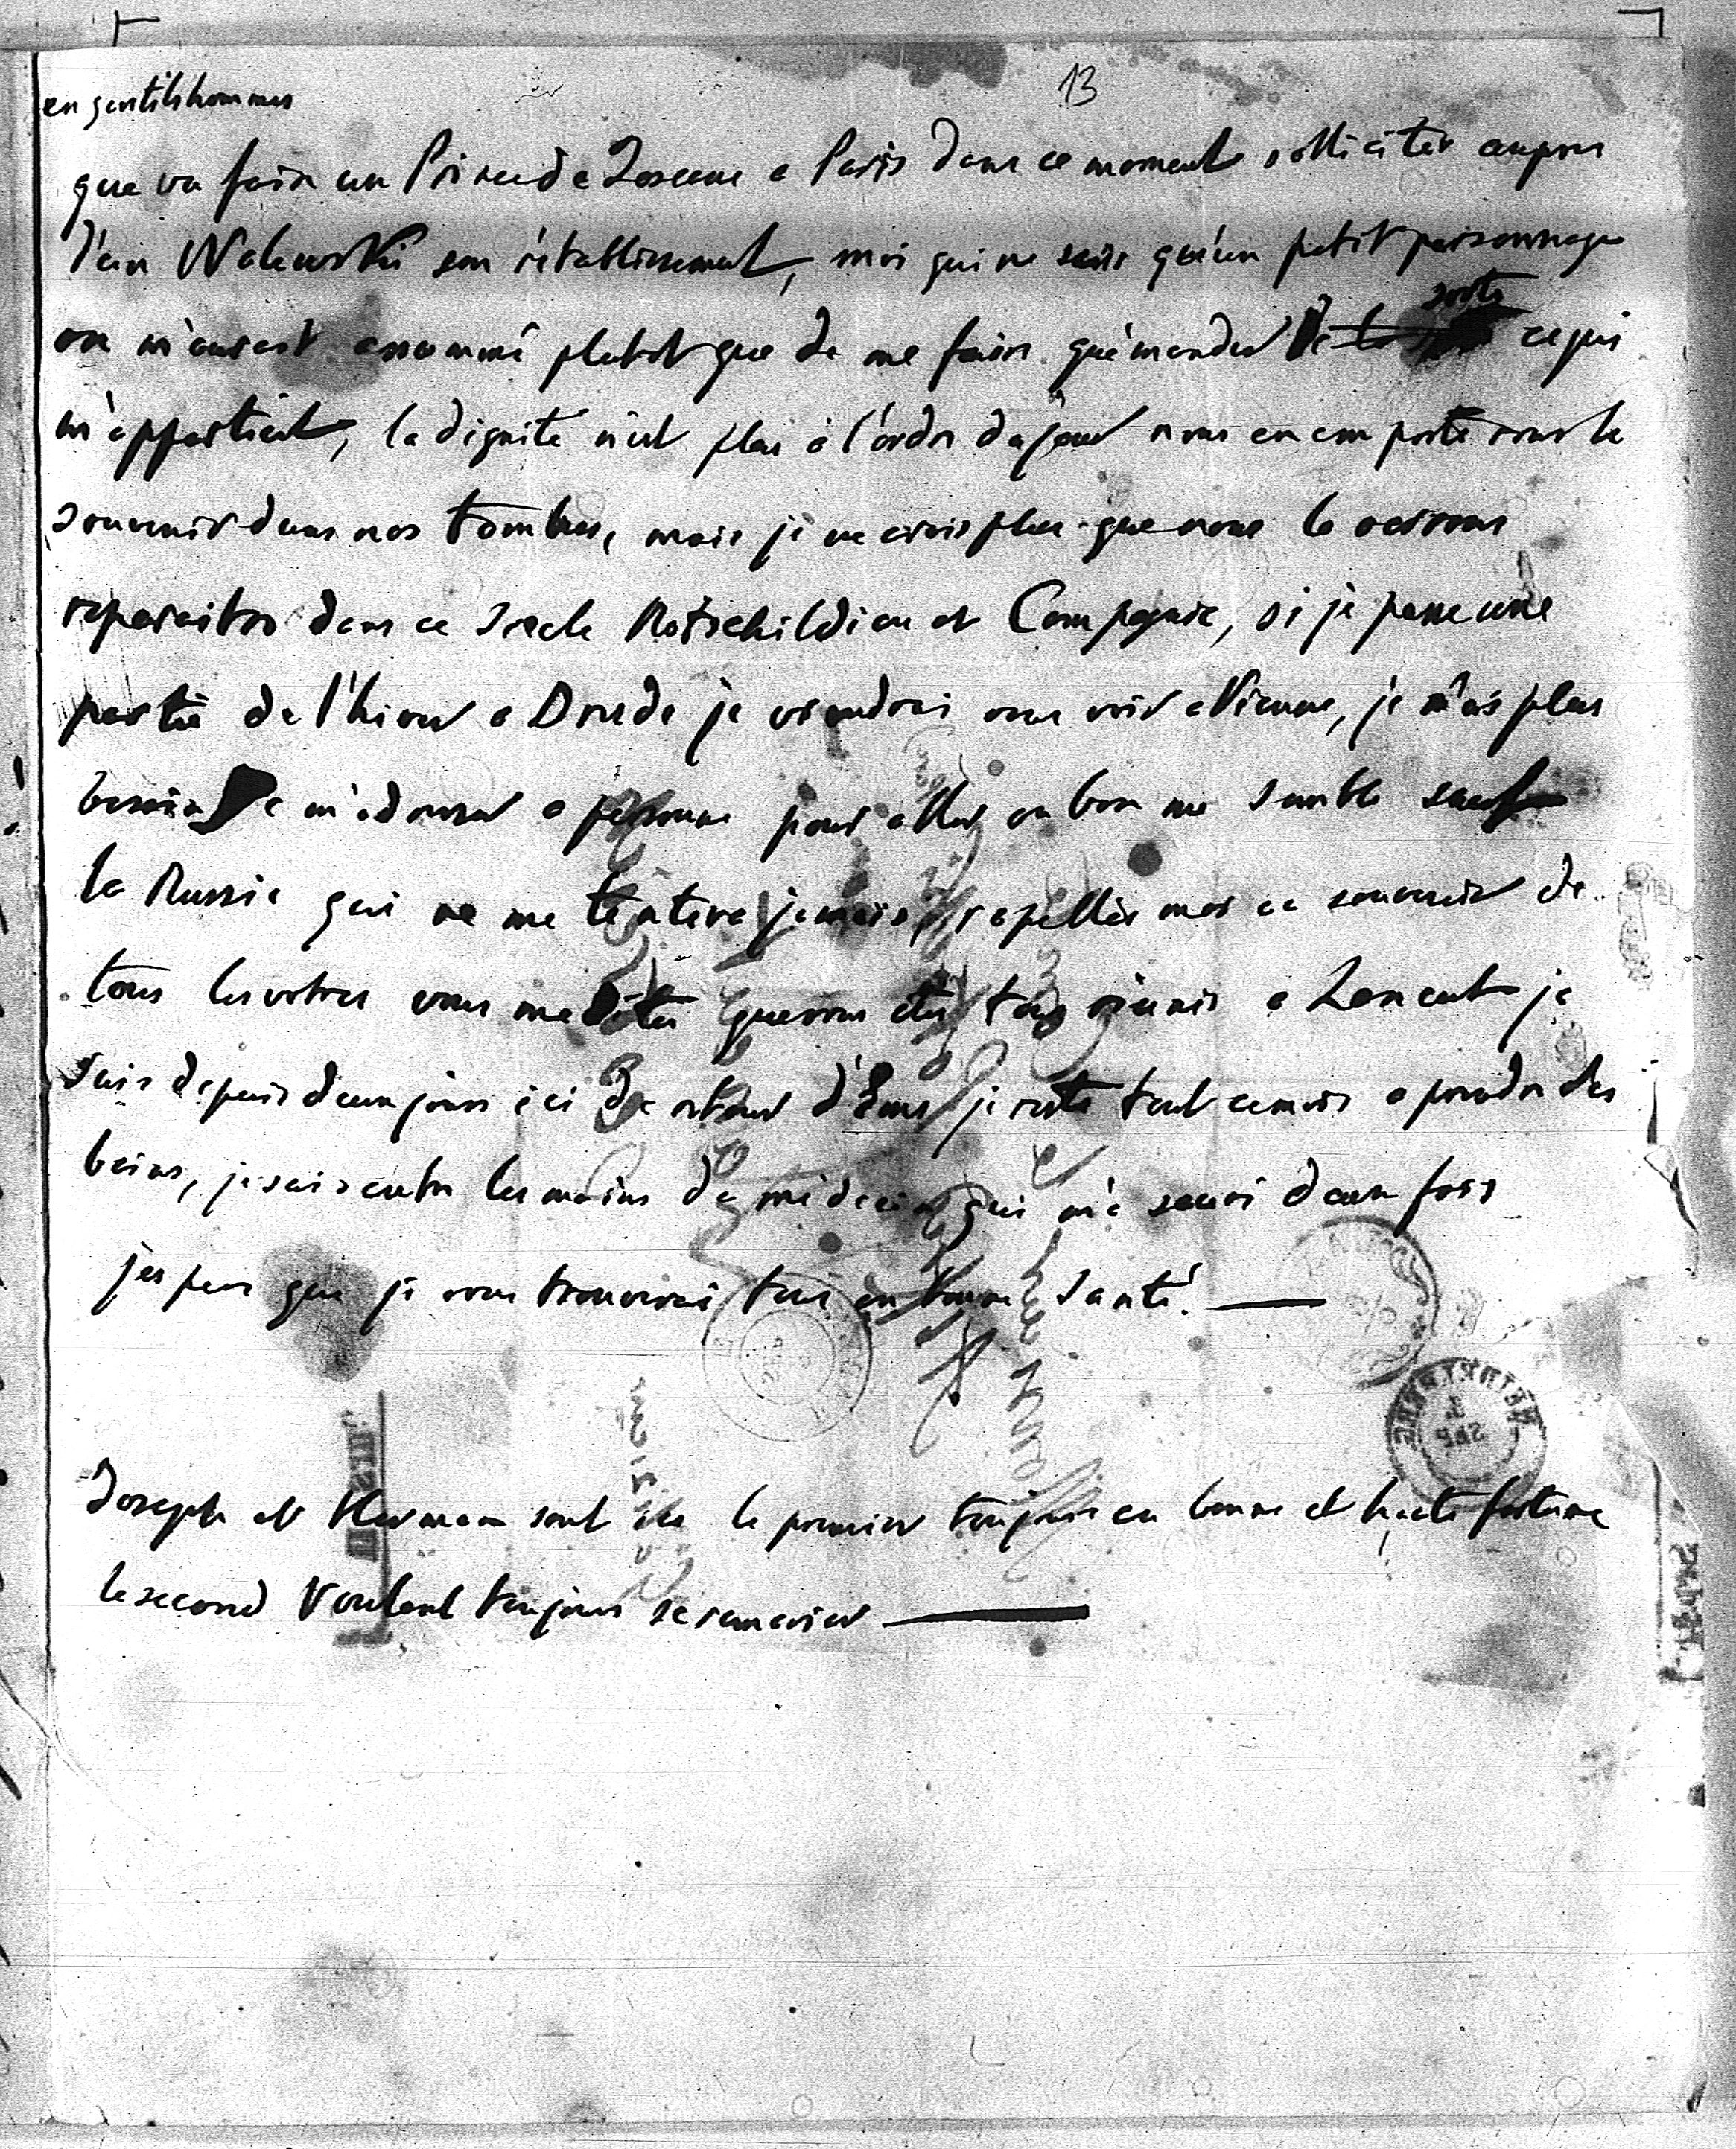 13
en gentilshommes
que va faire un Prince de Toscane a Paris dans ce moment solliciter aupres
d'un Walewski son rétablissement, moi qui ne suis qu'un petit personnage
on m'aurait assommé plutot que de me faire quémander de la sorte ce qui
m'appartient, la dignité n'est plus à l'ordre du jour nous en emporterons le
souvenir dans nos tombes, mais je ne crois plus que nous la verrons
reparaitre dans ce Siecle Rotschildien et Compagnie, si je passe une
partie de l'hiver a Dresde je viendrai vous voir a Vienne, je n'ai plus
besoin de m'adresser a personne pour aller ou bon me semble sauf
la Russie qui ne me tentera jamais, rapellés moi au souvenir de
tous les votres vous me dites que vous etes tous réunis a Lancut je
suis depuis deux jours ici de retour d'Ems je reste tout ce mois a prendre des
bains, je suis entre les mains du médecin qui m'a sauvé deux fois
j'espere que je vous trouverai tous en bonne Santé. —
Joseph et Herman sont ici le premier toujours en bonne et haute fortune
le second voulant toujours se remarier —